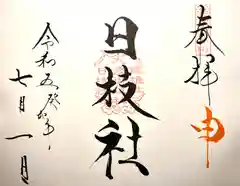 奉拝
申
日枝社
令和五癸卯年
七月一日